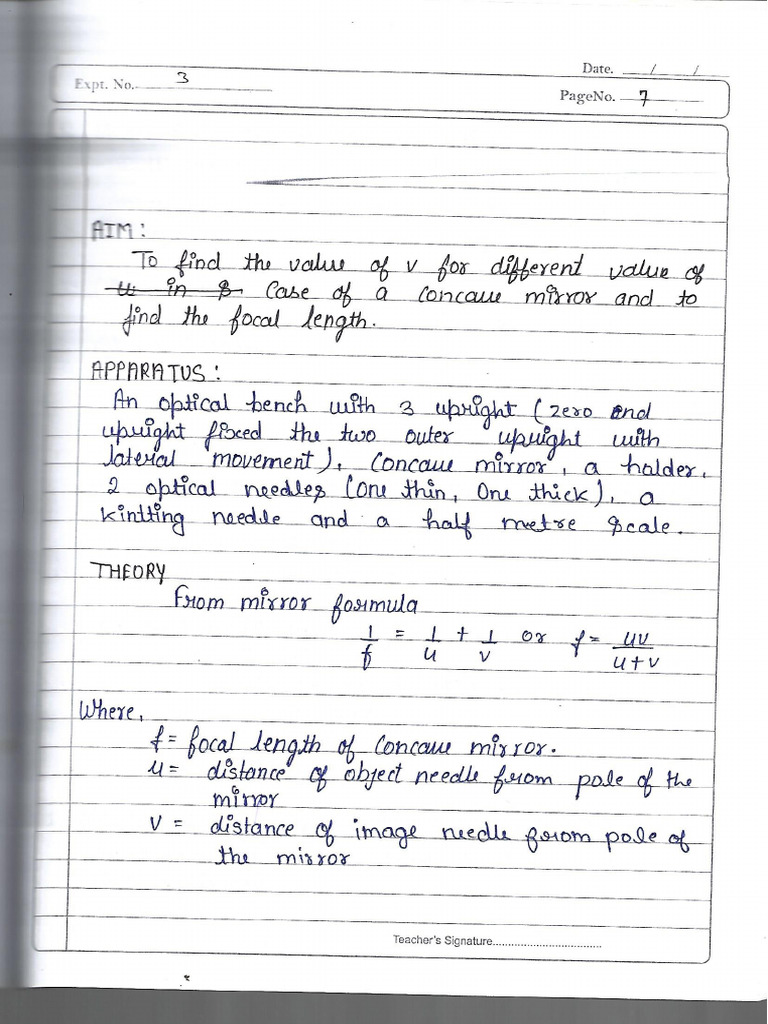 Date. __/__/__
Expt. No. 3
PageNo. 7
AIM:
To find the value of v for different value of
u in Case of a concave mirror and to
find the focal length.
APPARATUS:
An optical bench with 3 upright (zero end
upright fixed the two outer upright with
lateral movement), Concave mirror, a holder,
2 optical needles (One thin, One thick), a
kintting needle and a half metre scale.
THEORY
From mirror formula
1/f = 1/u + 1/v or f = uv/u+v
Where,
f = focal length of Concave mirror.
u = distance of object needle from pole of the
mirror
v = distance of image needle from pole of
the mirror
Teacher's Signature..................................